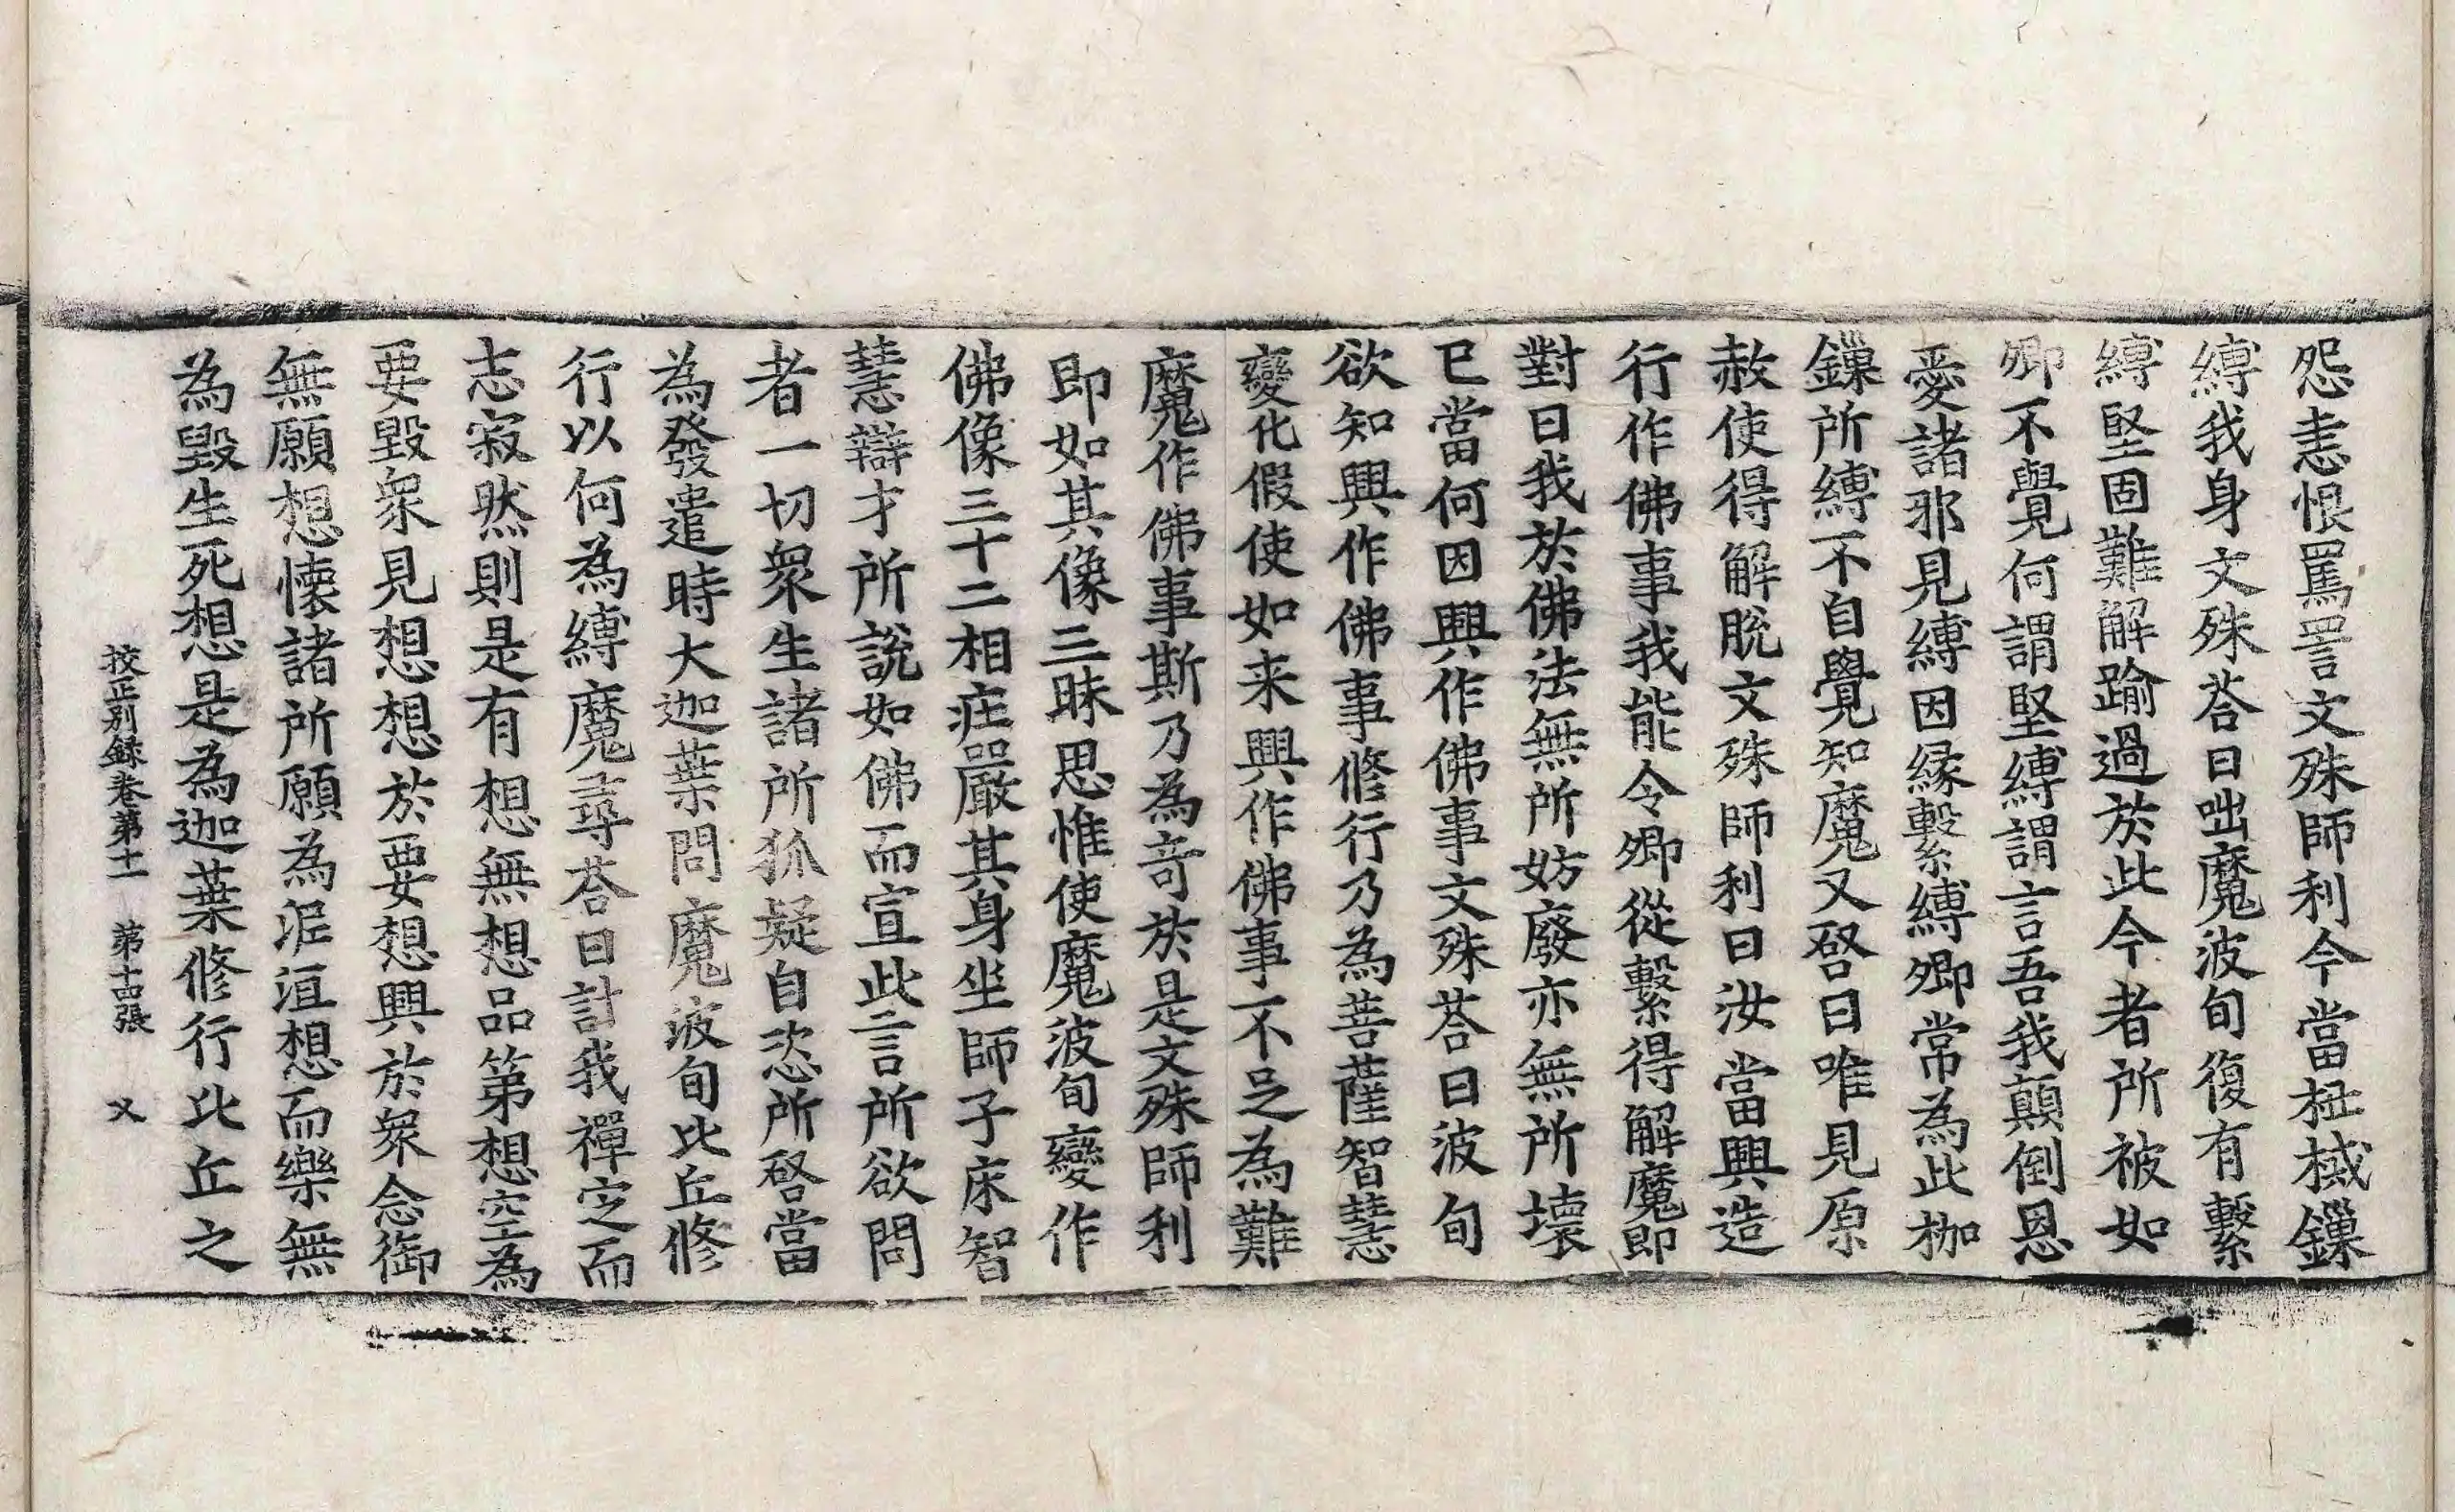 怨恚恨罵詈文殊師利今當杻械鏁
縛我身文殊荅曰咄魔波旬復有繫
縛堅固難解踰過於此今者所被如
卿不覺何謂堅縛謂言吾我顛倒恩
愛諸邪見縛因縁繫縛卿常為此枷
鏁所縛不自覺知魔又啓曰唯見原
赦使得解脫文殊師利曰汝當興造
行作佛事我能令卿從繫得解魔即
對曰我於佛法無所妨廢亦無所壞
已當何因興作佛事文殊荅曰波旬
欲知興作佛事修行乃為菩薩智慧
變化假使如来興作佛事不足為難
魔作佛事斯乃為奇於是文殊師利
即如其像三昧思惟使魔波旬變作
佛像三十二相莊嚴其身坐師子床智
慧辯才所說如佛而宣此言所欲問
者一切衆生諸所狐疑自恣所啓當
為發遣時大迦葉問魔波旬比丘修
行以何為縛魔尋荅曰計我禪定而
志寂然則是有想無想品第想空為
要毀衆見想想於要想興於衆念御
無願想懷諸所願為泥洹想而樂無
為毀生死想是為迦葉修行比丘之
挍正別録卷第十一　第十四張　乂